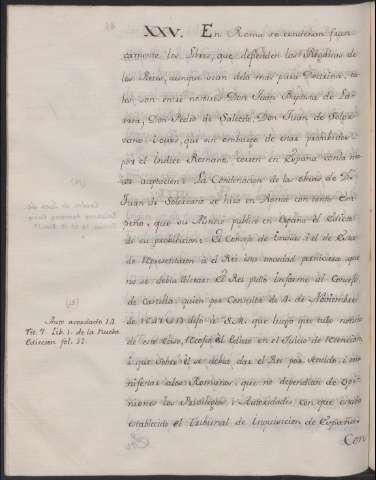 XXV. En Roma se condenan fran-
camente los Libros, que defienden las Regalias de
los Reies, aunque sean de la mas pura Doctrina, ta-
les, son entre nosotros Don Juan Baptista de La-
rrea, Don Pedro de Salcedo, Don Juan de Solor-
zano, i otros, que sin embargo de estar prohibidos
por el Indice Romano, corren en España con la ma-
ior aceptacion: La Condenacion de las obras de Dn
Juan de Solorzano se hizo en Roma con tanto Em-
peño, que su Nuncio publicò en España el Edicto
de su prohibicion: El Consejo de Indias i el de Esta-
do representaron à el Rei una novedad perniciosa que
no se debia tolerar: El Rei pidiò informe al Consejo
de Castilla, quien por Consulta de 4. de Noviembre
de 1647 (13) dijo à S.M. que luego que tubo noticia
de este Caso, recogiò el Edicto en el Juicio de retencion
i que sobre el se debia dar el Rei por sentido, i ma-
nifestar a los Romanos, que no dependian de Opi-
niones los Privilegios i Autoridades con que estaba
establecido el Tribunal de Inquisicion de España.
Con
(13)
Auto acordado 14
Tit. 7. Lib. 1. de la Nueba
Edicion fol. 32.